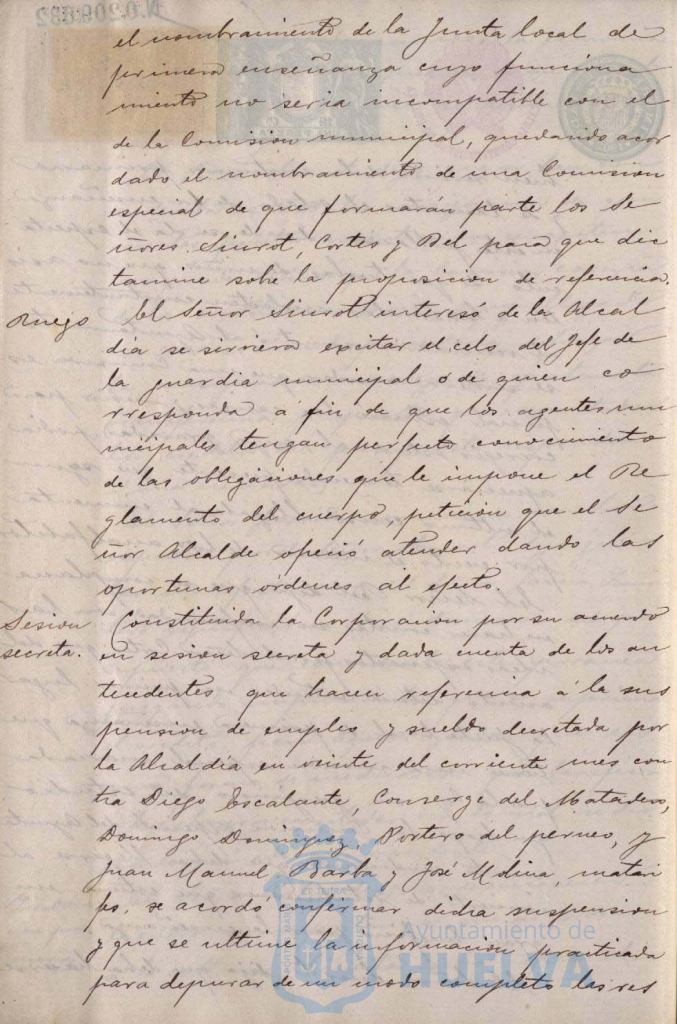 N.0.209.682
el nombramiento de la Junta local de
primera enseñanza cuyo funciona
miento no seria incompatible con el
de la Comision municipal, quedando acor
dado el nombramiento de una Comision
especial de que formarán parte los Se
ñores Siurot, Cortes y Bel para que dic
tamine sobre la proposicion de referencia.
Ruego El Señor Siurot interesó de la Alcal
dia se sirviera excitar el celo del Jefe de
la guardia municipal ó de quien co
rresponda á fin de que los agentes mu
nicipales tengan perfecto conocimiento
de las obligaciones que le impone el Re
glamento del cuerpo, peticion que el Se
ñor Alcalde ofreció atender dando las
oportunas órdenes al efecto.
Sesion Constituida la Corporacion por su acuerdo
secreta. en sesion secreta y dada cuenta de los an
tecedentes que hacen referencia á la sus
pension de empleo y sueldo decretada por
la Alcaldía en veinte del corriente mes con
tra Diego Escalante, Conserge del Matadero,
Domingo Dominguez, Portero del perneo, y
Juan Manuel Barba y José Molina, matari
fes, se acordó confirmar dicha suspension
y que se ultime la informacion practicada
para depurar de un modo completo las res
Ayuntamiento de
HUELVA